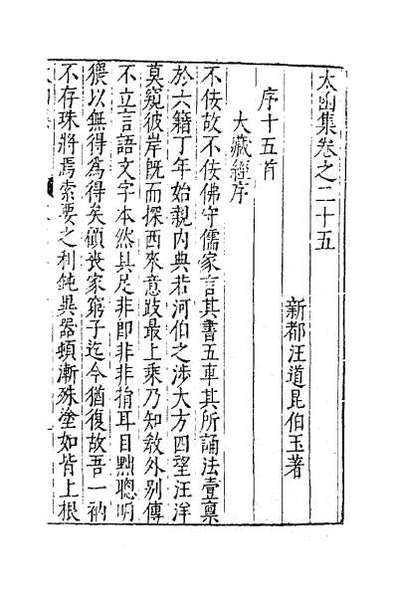 太函集卷之二十五
新都汪道昆伯玉著
序十五首
大藏經序
不佞故不佞佛守儒家言其書五車其所誦法壹稟
於六籍丁年始親內典若河伯之涉大方四望汪洋
莫窺彼岸旣而探西來意跂最上乘乃知敎外別傳
不立言語文字本然具足非卽非非捐耳目黜聰明
猥以無得爲得矣顧喪家窮子迄今猶復故吾一衲
不存珠將焉索要之利鈍異器頓漸殊塗如皆上根